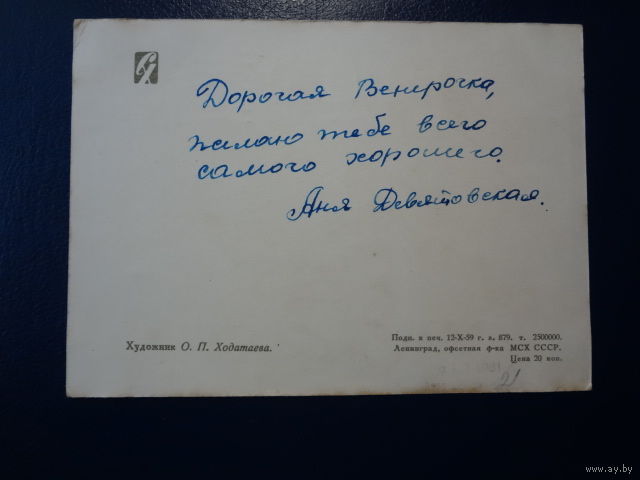 Дорогая Венерочка,
желаю тебе всего
самого хорошего.
Аня Девятовская.
Художник О. П. Ходатаева.
Подп. в печ. 12-X-59 г. з. 879. т. 2500000.
Ленинград, офсетная ф-ка МСХ СССР.
Цена 20 коп.
21
www.ay.by